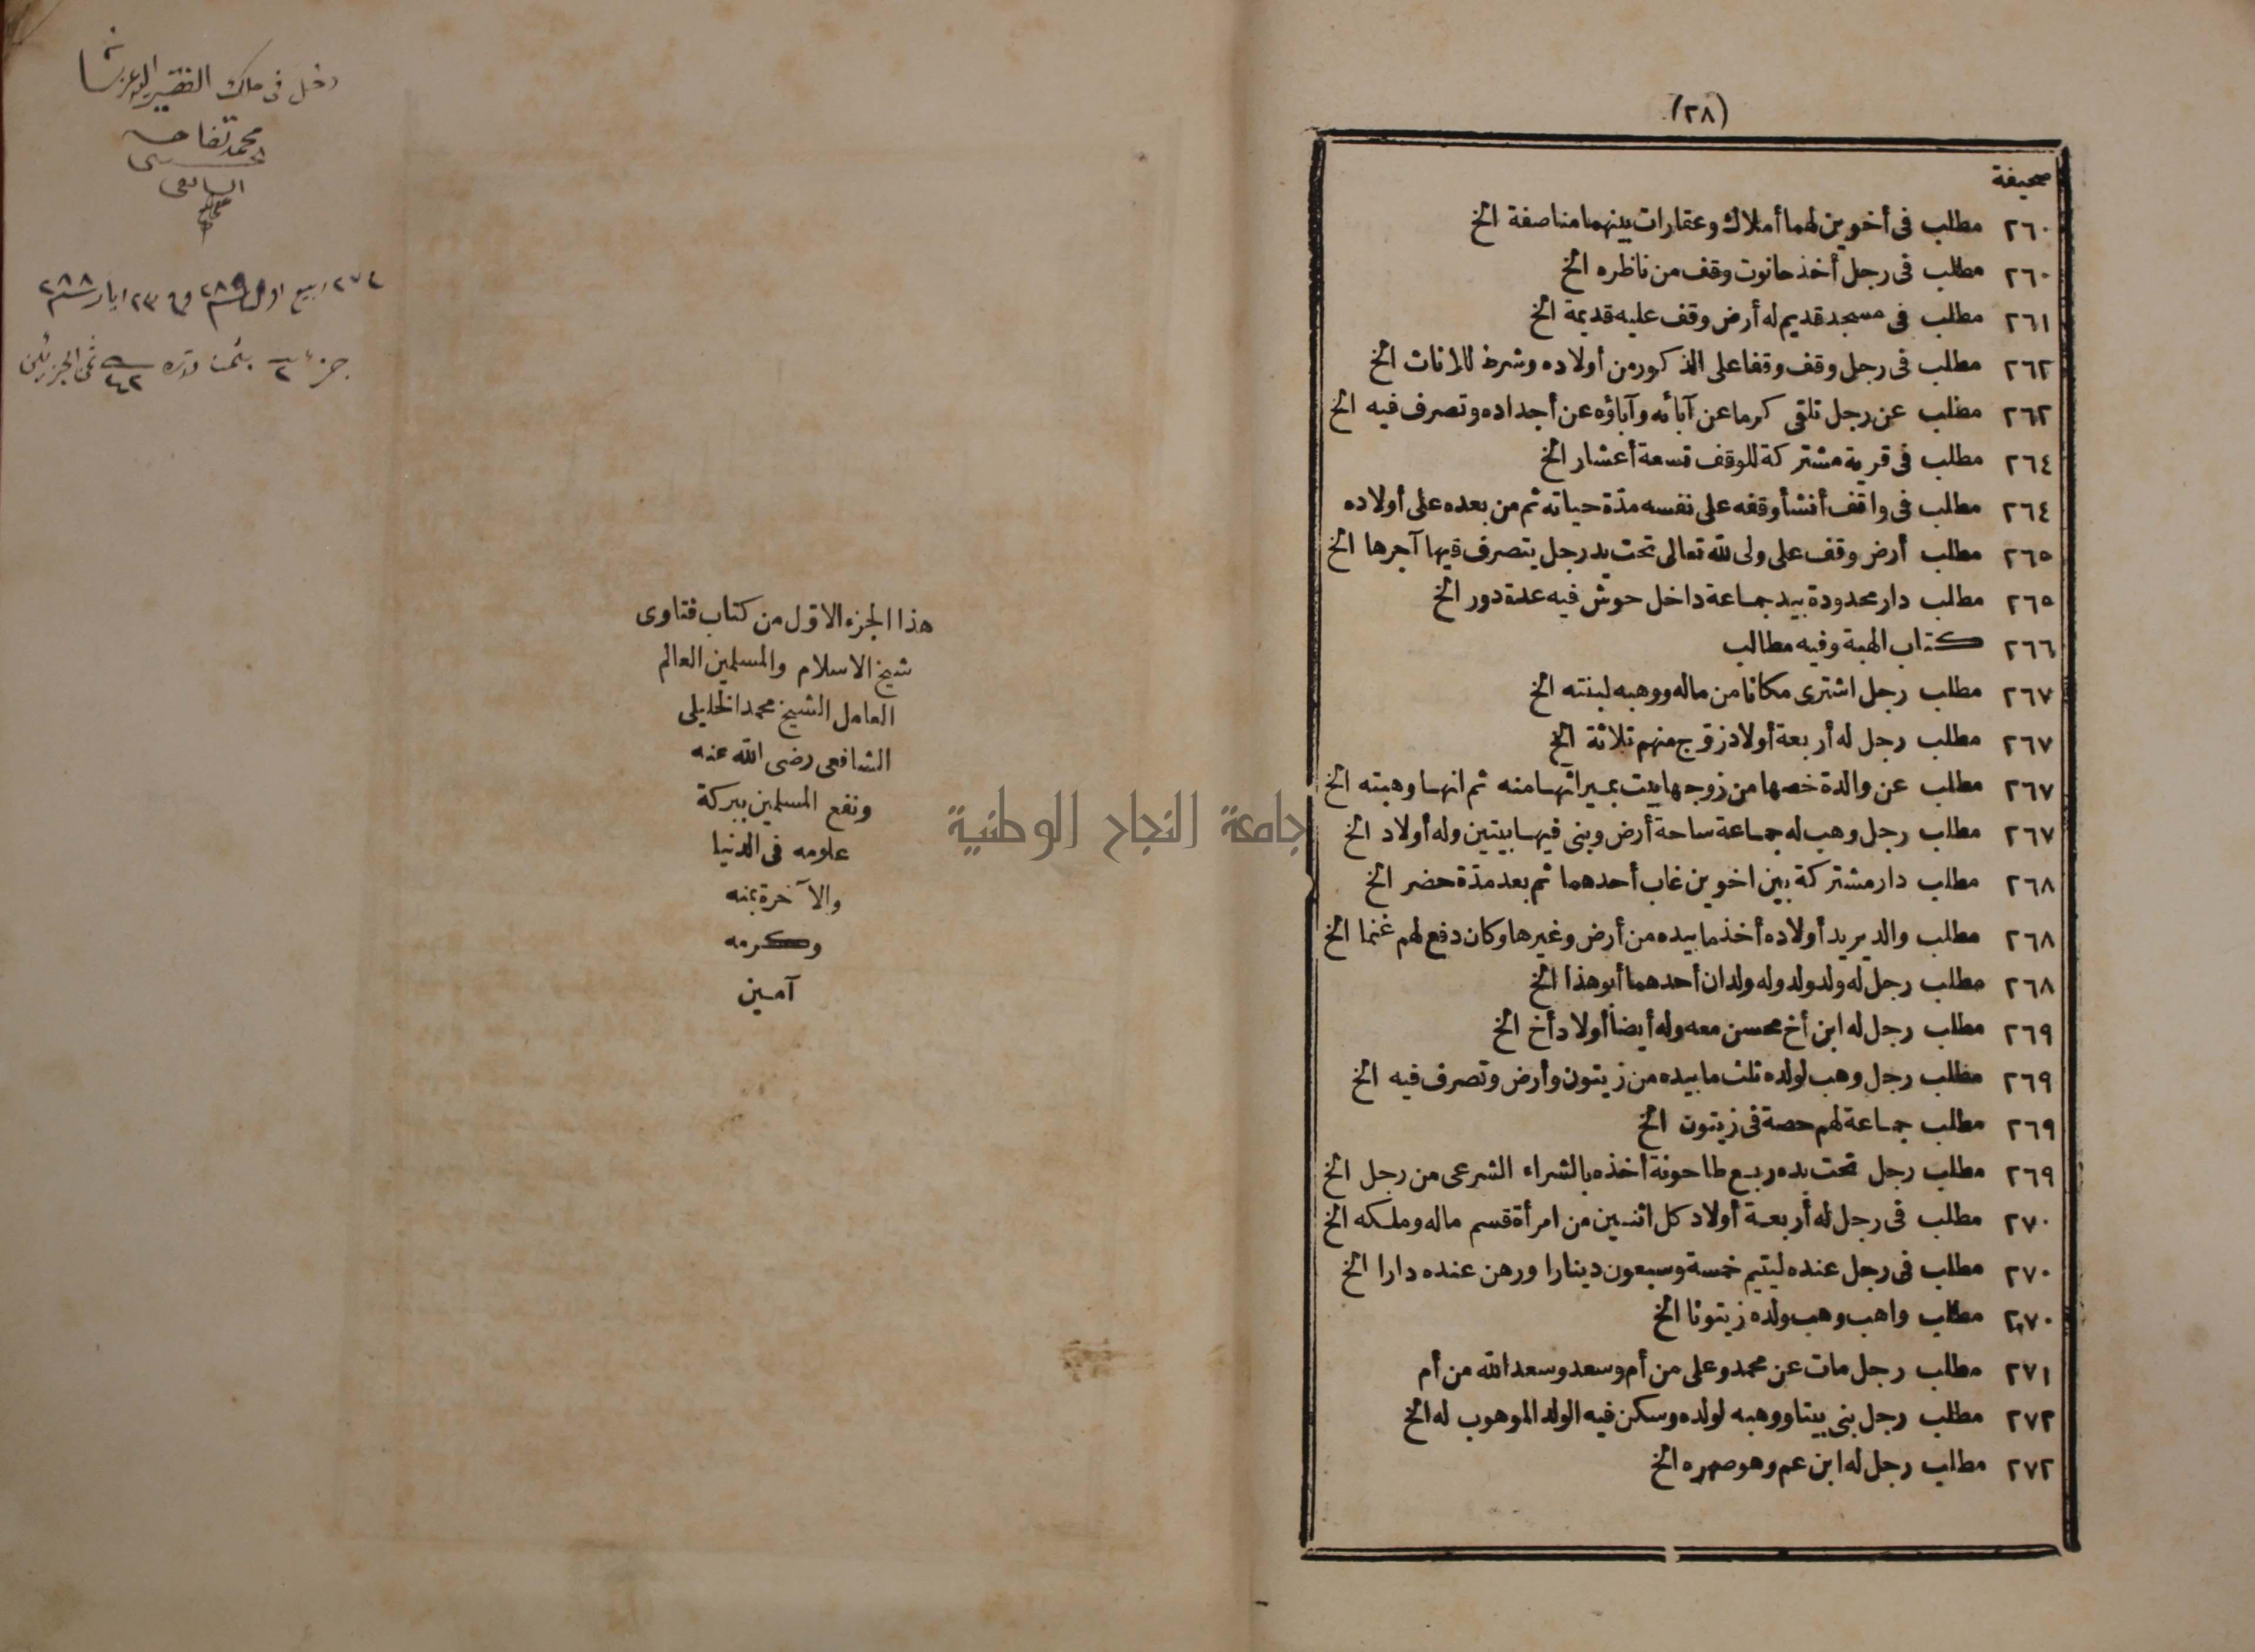 (٢٨)
صحيفة
٢٦٠ مطلب فى أخوين لهما أملاك وعقارات بينهما مناصفة الخ
٢٦٠ مطلب فى رجل أخذ حانوت وقف من ناظره الخ
٢٦١ مطلب فى مسجد قديم له أرض وقف عليه قديمة الخ
٢٦٢ مطلب فى رجل وقف وقفا على الذكور من أولاده وشرط للاناث الخ
٢٦٢ مطلب عن رجل تلقى كرما عن آبائه وآباؤه عن أجداده وتصرف فيه الخ
٢٦٤ مطلب فى قرية مشتركة للوقف تسعة أعشار الخ
٢٦٤ مطلب فى واقف أنشأ وقفه على نفسه مدّة حياته ثم من بعده على أولاده
٢٦٥ مطلب أرض وقف على ولى لله تعالى تحت يد رجل يتصرف فيها آجرها الخ
٢٦٥ مطلب دار محدودة بيد جماعة داخل حوش فيه عدة دور الخ
٢٦٦ كتاب الهبة وفيه مطالب
٢٦٧ مطلب رجل اشترى مكانا من ماله ووهبه لبنته الخ
٢٦٧ مطلب رجل له أربعة أولاد زوّج منهم ثلاثة الخ
٢٦٧ مطلب عن والدة خصها من زوجها بيت بميراثها منه ثم انها وهبته الخ
٢٦٧ مطلب رجل وهب له جماعة ساحة أرض وبنى فيها بيتين وله أولاد الخ
٢٦٨ مطلب دار مشتركة بين اخوين غاب أحدهما ثم بعد مدّة حضر الخ
٢٦٨ مطلب والد يريد أولاده أخذ ما بيده من أرض وغيرها وكان دفع لهم غنما الخ
٢٦٨ مطلب رجل له ولد ولد وله ولدان أحدهما أبو هذا الخ
٢٦٩ مطلب رجل له ابن أخ محسن معه وله أيضا أولاد أخ الخ
٢٦٩ مطلب رجل وهب لولده ثلث ما بيده من زيتون وأرض وتصرف فيه الخ
٢٦٩ مطلب جماعة لهم حصة فى زيتون الخ
٢٦٩ مطلب رجل تحت يده ربع طاحونة أخذه بالشراء الشرعى من رجل الخ
٢٧٠ مطلب فى رجل له أربعة أولاد كل اثنين من امرأة قسم ماله وملكه الخ
٢٧٠ مطلب فى رجل عنده ليتيم خمسة وسبعون دينارا ورهن عنده دارا الخ
٢٧٠ مطلب واهب وهب ولده زيتونا الخ
٢٧١ مطلب رجل مات عن محمد وعلى من أم وسعد وسعد الله من أم
٢٧٢ مطلب رجل بنى بيتا ووهبه لولده وسكن فيه الولد الموهوب له الخ
٢٧٢ مطلب رجل له ابن عم وهو صهره الخ
هذا الجزء الاوّل من كتاب فتاوى
شيخ الاسلام والمسلمين العالم
العامل الشيخ محمد الخليلى
الشافعى رضى الله عنه
ونفع المسلمين ببركة
علومه فى الدنيا
والآخرة بمنه
وكرمه
آمين
دخل فى ملك الفقير
محمد تفاحه
ربيع اول ٢٨٩ و ٢٣ ايار ٢٨٨
جزء ٢
جامعة النجاح الوطنية